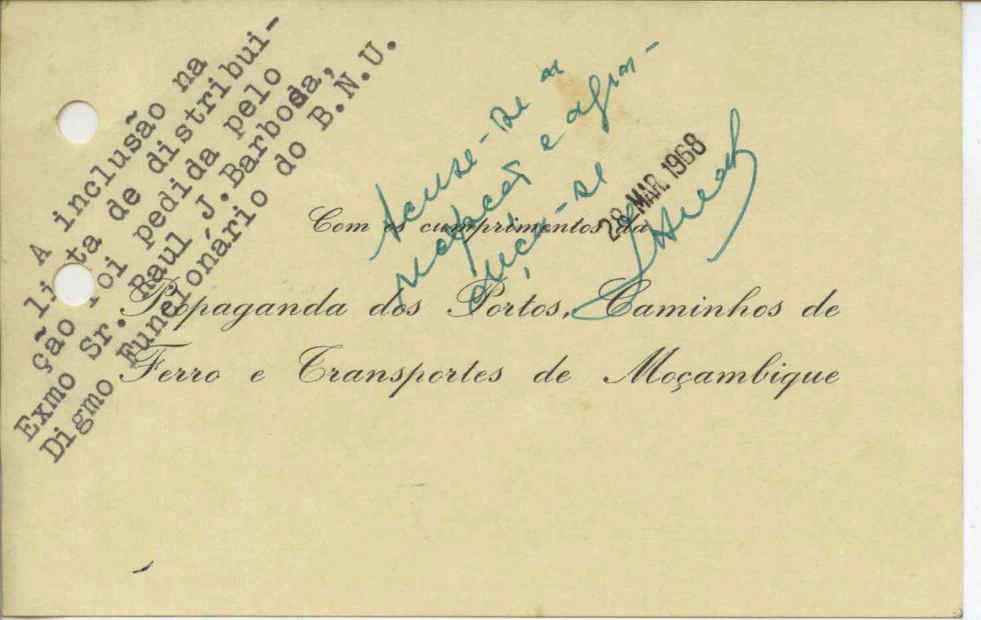 A inclusão na
lista de distribui-
ção foi pedida pelo
Exmo Sr. Raul J.Barbosa,
Digmo Funcionário do B.N.U.
Acuse-se a
recepção e agra-
deça-se
28.MAR.1968
Com os cumprimentos da
Propaganda dos Portos, Caminhos de
Ferro e Transportes de Moçambique